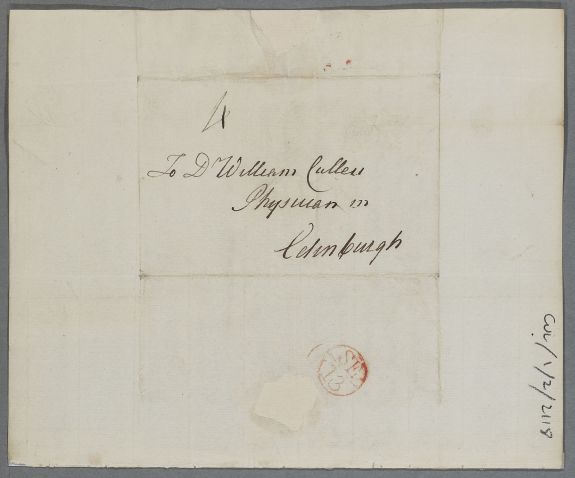 4
To Dr William Cullen
Physician in
Edinburgh
SE
13
CUL/1/2/2118